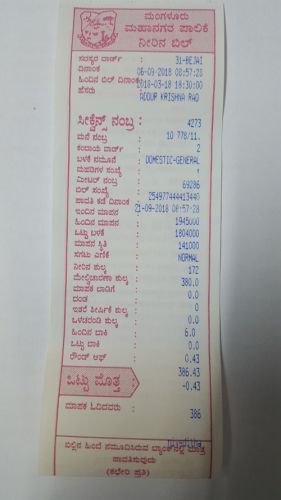 ಮಂಗಳೂರು
ಮಹಾನಗರ ಪಾಲಿಕೆ
ನೀರಿನ ಬಿಲ್
ಸದಸ್ಯರ ವಾರ್ಡ್ : 31-BEJAI
ದಿನಾಂಕ : 06-09-2018 08:57:28
ಹಿಂದಿನ ಬಿಲ್ ದಿನಾಂಕ 2018-03-18 18:30:00
ಹೆಸರು : ADDUP KRISHNA RAO
ಸೀಕ್ವೆನ್ಸ್ ನಂಬ್ರ : 4273
ಮನೆ ನಂಬ್ರ : 10 778/11.
ಕಂದಾಯ ವಾರ್ಡ್ : 2
ಬಳಕೆ ನಮೂನೆ : DOMESTIC-GENERAL
ಮಹಡಿಗಳ ಸಂಖ್ಯೆ : 1
ಮೀಟರ್ ನಂಬ್ರ : 69286
ಬಿಲ್ ಸಂಖ್ಯೆ : 254977444413440
ಪಾವತಿ ಕಡೆ ದಿನಾಂಕ : 21-09-2018 08:57:28
ಇಂದಿನ ಮಾಪನ : 1945000
ಹಿಂದಿನ ಮಾಪನ : 1804000
ಒಟ್ಟು ಬಳಕೆ : 141000
ಮಾಪನ ಸ್ಥಿತಿ : NORMAL
ಸಗಟು ಎಣಿಕೆ :
ನೀರಿನ ಶುಲ್ಕ : 172
ಮೇಲ್ವಿಚಾರಣಾ ಶುಲ್ಕ : 380.0
ಮಾಪಕ ಬಾಡಿಗೆ : 0.0
ದಂಡ : 0
ಇತರೆ ಶೀರ್ಷಿಕೆ ಶುಲ್ಕ : 0.0
ಒಳಚರಂಡಿ ಶುಲ್ಕ : 0.0
ಹಿಂದಿನ ಬಾಕಿ : 6.0
ಒಟ್ಟು ಬಾಕಿ : 0.0
ರೌಂಡ್ ಆಫ್ : 0.43
386.43
ಒಟ್ಟು ಮೊತ್ತ : -0.43
ಮಾಪಕ ಓದಿದವರು : 386
ಬಿಲ್ಲಿನ ಹಿಂದೆ ನಮೂದಿಸಿರುವ ಬ್ಯಾಂಕ್‌ನಲ್ಲಿ ಮಾತ್ರ
ಪಾವತಿಸುವುದು
(ಕಛೇರಿ ಪ್ರತಿ)